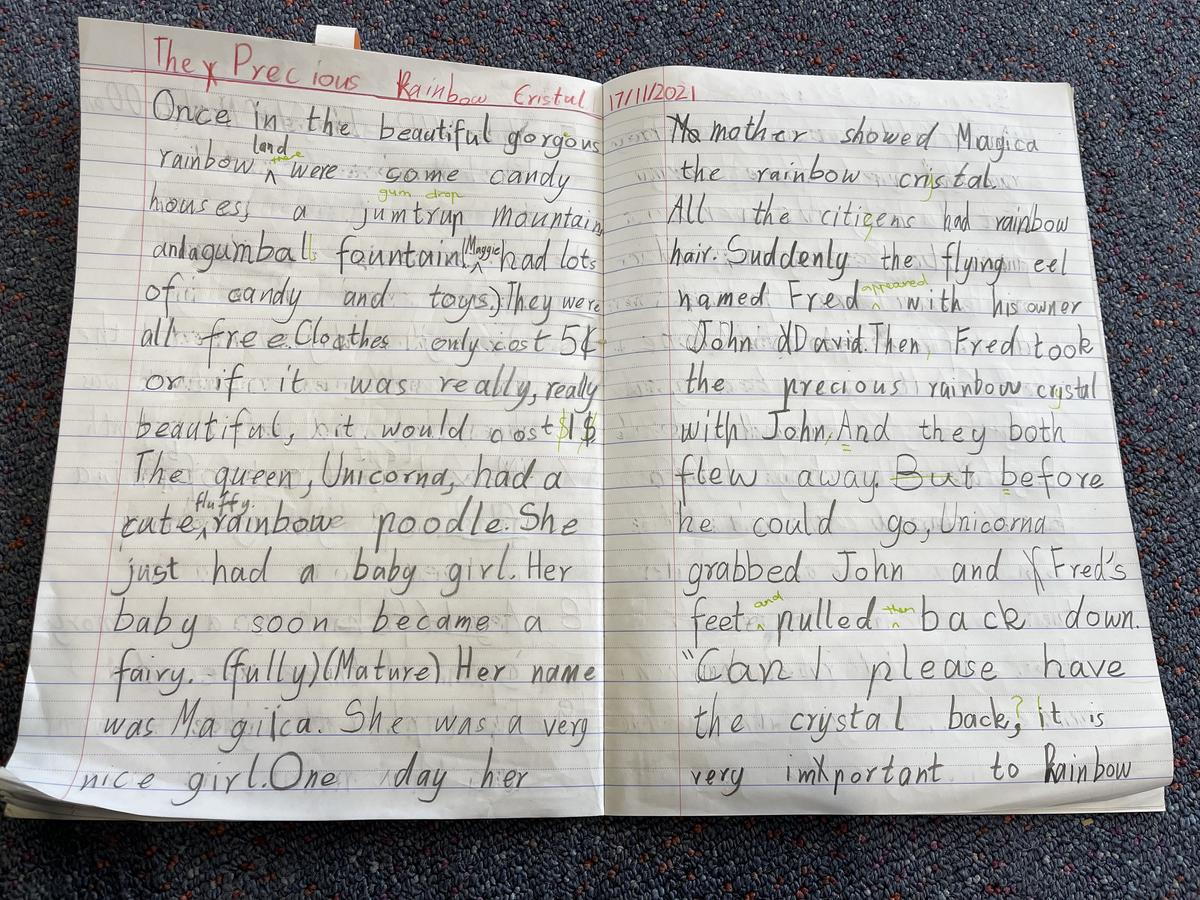 The Precious Rainbow Cristal
Once in the beautiful gorgous
land there
rainbow ^ were some candy
gum drop
houses, a jumtrup mountain
and a gumball fountain! (Maggie ^ had lots
of candy and toys.) They were
all free. Cloathes only cost 5¢
or if it was really, really
beautiful, it would cost $1$
The queen, Unicorna, had a
fluffy
cute, ^ rainbow poodle. She
just had a baby girl. Her
baby soon became a
fairy. (fully) (Mature) Her name
was Magica. She was a very
nice girl. One day her
17/11/2021
mother showed Magica
the rainbow crystal.
All the citizens had rainbow
hair. Suddenly the flying eel
appeared
named Fred ^ with his owner
John David. Then, Fred took
the precious rainbow crystal
with John, And they both
flew away. But before
he could go, Unicorna
grabbed John and Fred's
and then
feet ^ pulled ^ back down.
"Can I please have
the crystal back,? it is
very important to Rainbow